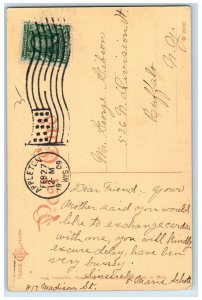 APPLETON
FEB 27
12 M
1909
WIS.
Mr. George Gibson
536 N. Division St.
Buffalo
N.Y.
Dear Friend:- your
Mother said you would
like to exchange cards
with one, you will kindly
excuse delay, have been
very bussy.
Sincerely Marie Schott
817 Madison St.